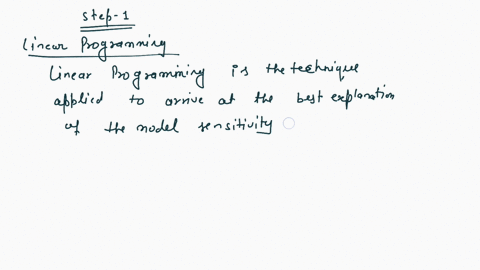 Step-1
Linear Programming
Linear Programming is the technique
applied to arrive at the best explanation
of the model sensitivity